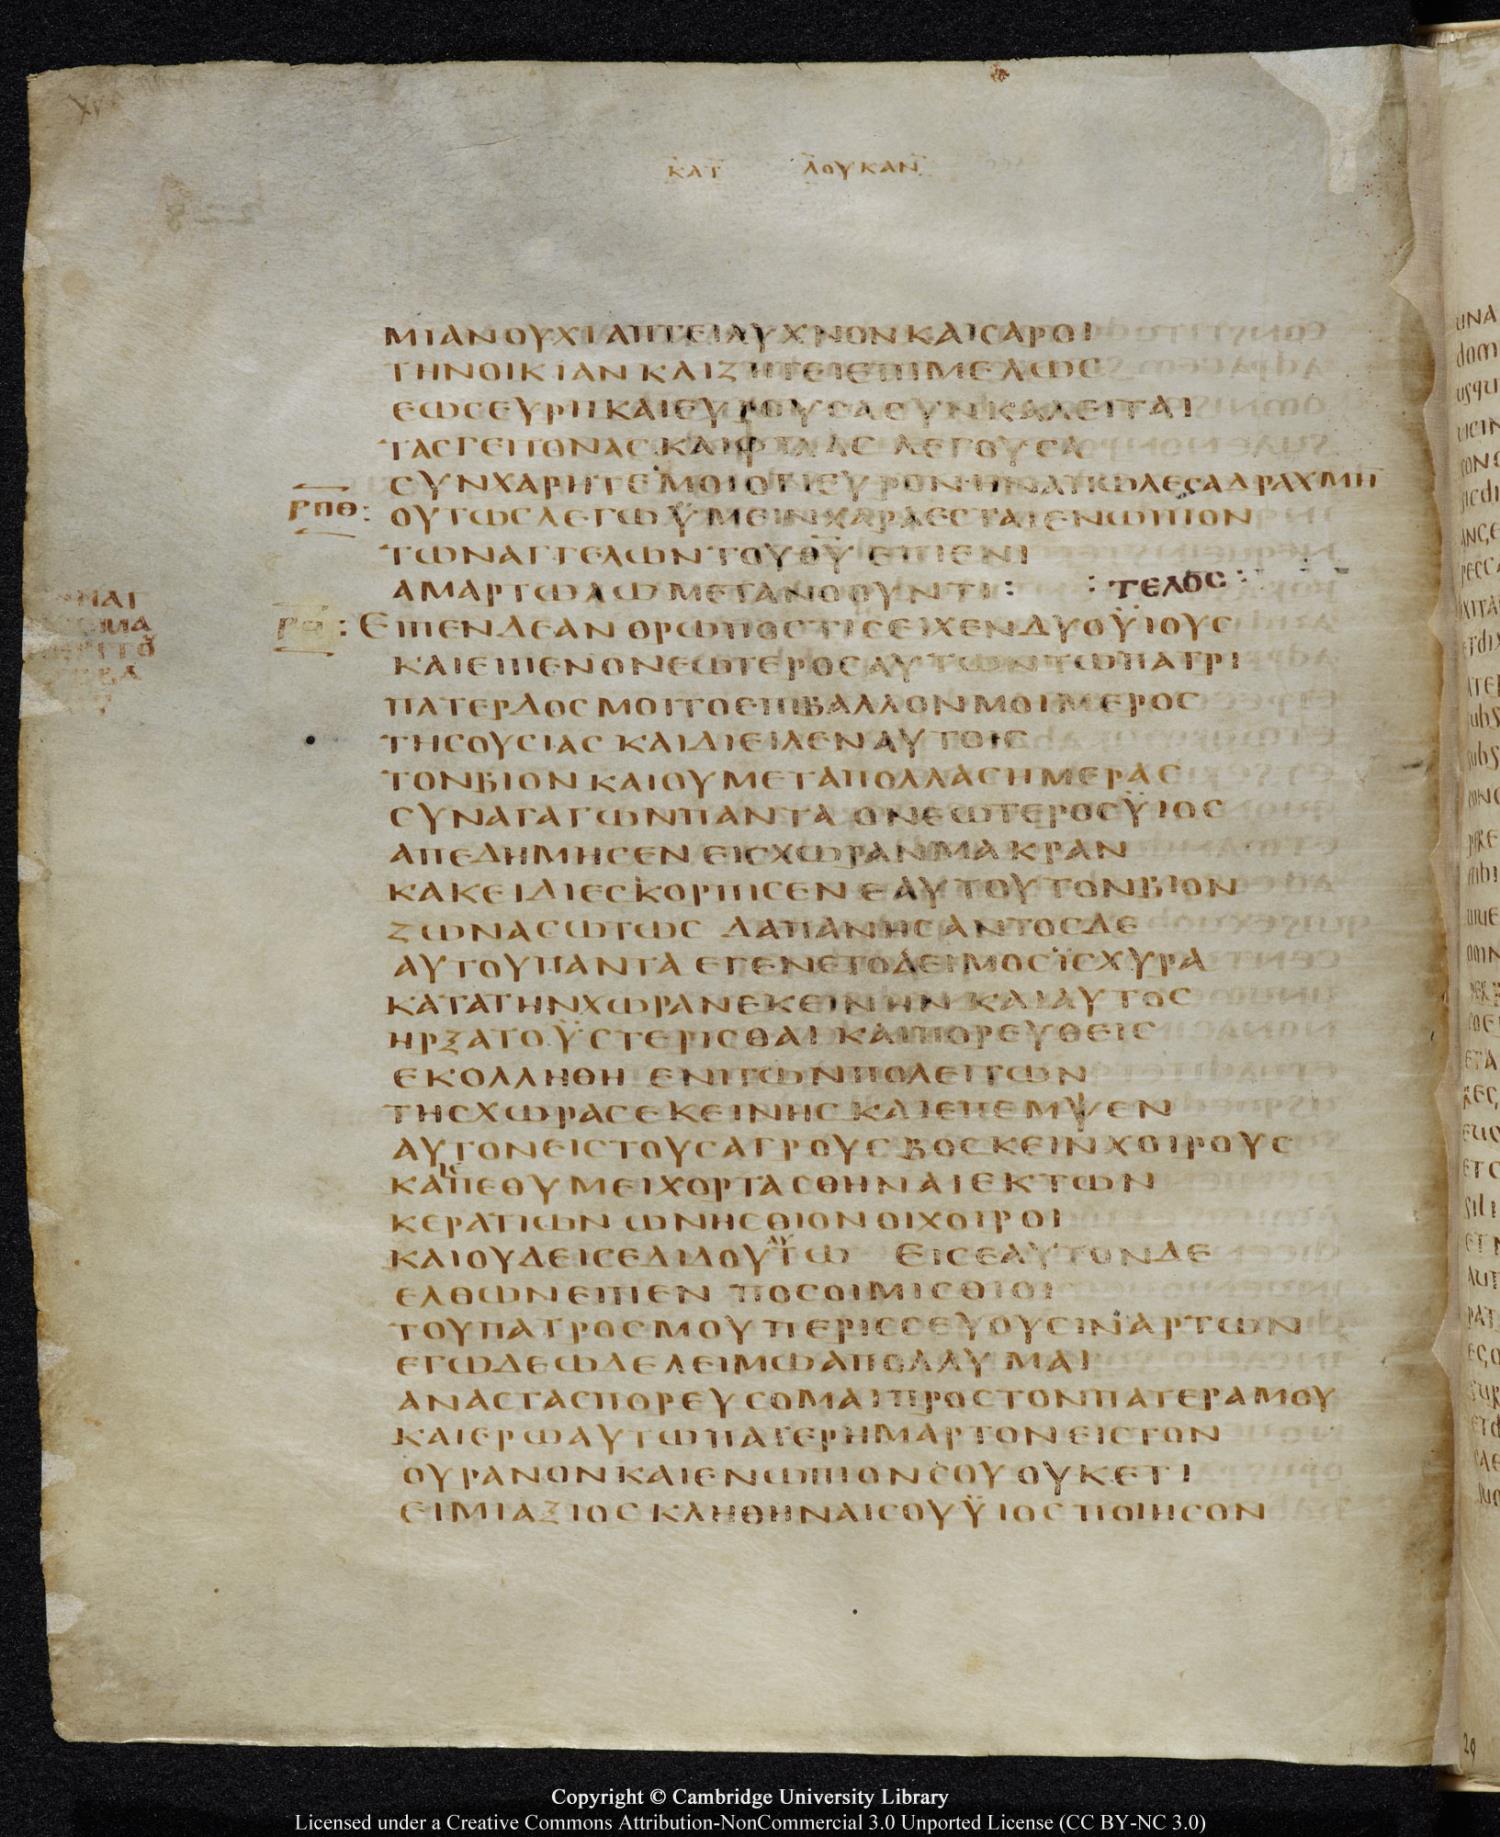 ΚΑΤ ΛΟΥΚΑΝ
ΜΙΑΝΟΥΧΙΑΠΤΕΙΛΥΧΝΟΝΚΑΙСΑΡΟΙ
ΤΗΝΟΙΚΙΑΝΚΑΙΖΗΤΕΙΕΠΙΜΕΛΩС
ΕΩСΕΥΡΗΚΑΙΕΥΡΟΥСΑСΥΝΚΑΛΕΙΤΑΙ
ΤΑСΓΕΙΤΟΝΑСΚΑΙΦΙΛΑС ΛΕΓΟΥСΑ
СΥΝΧΑΡΗΤΕΜΟΙΟΤΙΕΥΡΟΝΗΝΑΠΩΛΕСΑΔΡΑΧΜΗ
ΡΠΘ: ΟΥΤΩСΛΕΓΩΫΜΕΙΝΧΑΡΑΕСΤΑΙΕΝΩΠΙΟΝ
ΤΩΝΑΓΓΕΛΩΝΤΟΥΘΥ ΕΠΙΕΝΙ
ΑΜΑΡΤΩΛΩΜΕΤΑΝΟΟΥΝΤΙ: :ΤΕΛΟС:
ΕΙΠΕΝΔΕΑΝΘΡΩΠΟСΤΙСΕΙΧΕΝΔΥΟΫΙΟΥС
ΚΑΙΕΙΠΕΝΟΝΕΩΤΕΡΟСΑΥΤΩΝΤΩΠΑΤΡΙ
ΠΑΤΕΡΔΟСΜΟΙΤΟΕΠΙΒΑΛΛΟΝΜΟΙΜΕΡΟС
ΤΗСΟΥСΙΑС ΚΑΙΔΙΕΙΛΕΝΑΥΤΟΙС
ΤΟΝΒΙΟΝΚΑΙΟΥΜΕΤΑΠΟΛΛΑСΗΜΕΡΑС
СΥΝΑΓΑΓΩΝΠΑΝΤΑ ΟΝΕΩΤΕΡΟСΫΙΟС
ΑΠΕΔΗΜΗСΕΝ ΕΙСΧΩΡΑΝΜΑΚΡΑΝ
ΚΑΚΕΙΔΙΕСΚΟΡΠΙСΕΝ ΕΑΥΤΟΥΤΟΝΒΙΟΝ
ΖΩΝΑСΩΤΩС ΔΑΠΑΝΗСΑΝΤΟСΔΕ
ΑΥΤΟΥΠΑΝΤΑ ΕΓΕΝΕΤΟΛΕΙΜΟСΪСΧΥΡΑ
ΚΑΤΑΤΗΝΧΩΡΑΝΕΚΕΙΝΗΝ ΚΑΙΑΥΤΟС
ΗΡΞΑΤΟΫСΤΕΡΙСΘΑΙ ΚΑΙΠΟΡΕΥΘΕΙС
ΕΚΟΛΛΗΘΗ ΕΝΙΤΩΝΠΟΛΕΙΤΩΝ
ΤΗСΧΩΡΑСΕΚΕΙΝΗС ΚΑΙΕΠΕΜΨΕΝ
ΑΥΤΟΝΕΙСΤΟΥСΑΓΡΟΥС ΒΟСΚΕΙΝΧΟΙΡΟΥС
ΚΑΙΕΠΕΘΥΜΕΙΧΟΡΤΑСΘΗΝΑΙΕΚΤΩΝ
ΚΕΡΑΤΙΩΝ ΩΝΗСΘΙΟΝΟΙΧΟΙΡΟΙ
ΚΑΙΟΥΔΕΙСΕΔΙΔΟΥΑΥΤΩ ΕΙСΕΑΥΤΟΝΔΕ
ΕΛΘΩΝΕΙΠΕΝ ΠΟСΟΙΜΙСΘΙΟΙ
ΤΟΥΠΑΤΡΟСΜΟΥΠΕΡΙССΕΥΟΥСΙΝΑΡΤΩΝ
ΕΓΩΔΕΩΔΕΛΕΙΜΩΑΠΟΛΛΥΜΑΙ
ΑΝΑСΤΑСΠΟΡΕΥСΟΜΑΙΠΡΟСΤΟΝΠΑΤΕΡΑΜΟΥ
ΚΑΙΕΡΩΑΥΤΩΠΑΤΕΡΗΜΑΡΤΟΝΕΙСΤΟΝ
ΟΥΡΑΝΟΝΚΑΙΕΝΩΠΙΟΝСΟΥ ΟΥΚΕΤΙ
ΕΙΜΙΑΞΙΟСΚΛΗΘΗΝΑΙСΟΥΫΙΟСΠΟΙΗСΟΝ
Copyright © Cambridge University Library
Licensed under a Creative Commons Attribution-NonCommercial 3.0 Unported License (CC BY-NC 3.0)